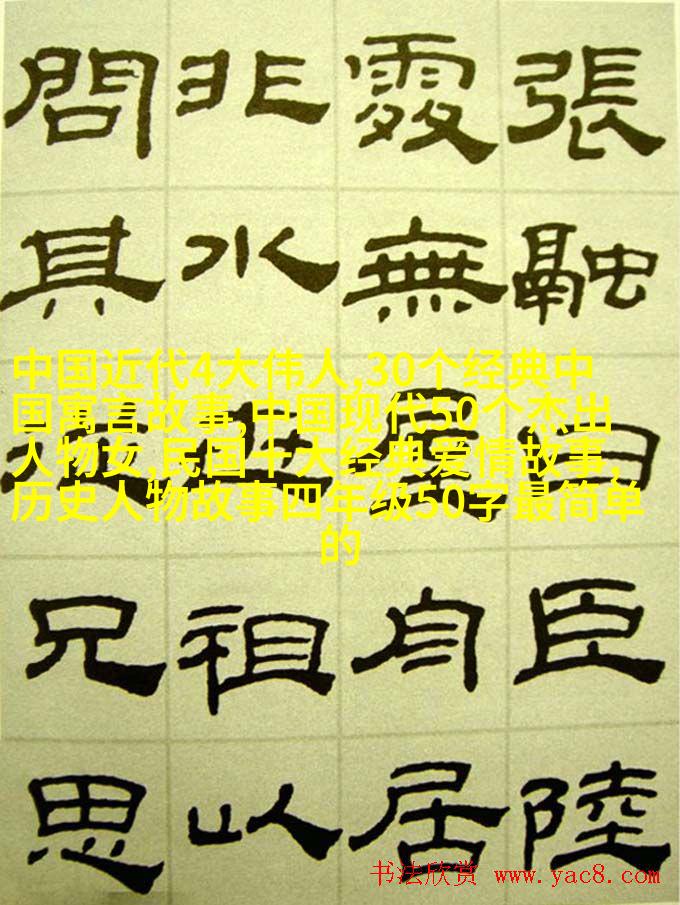 張融曰臣陸
處無屋舟居
非水世祖以
問其從兄思
中国近代4大伟人,30个经典中
国寓言故事,中国现代50个杰出
人物女,民国十大经典爱情故事,
历史人物故事四年级50字最简单
的
书法欣赏 www.yac8.com